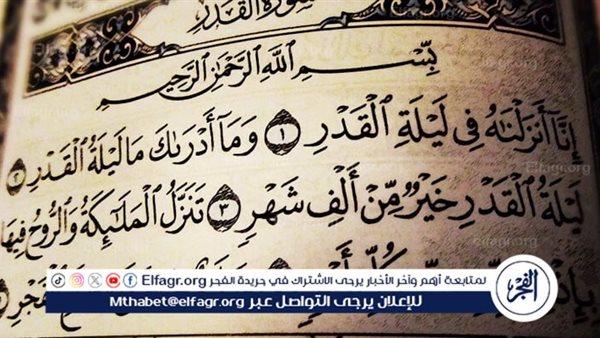 سورة القدر
بِسْمِ اللَّهِ الرَّحْمَٰنِ الرَّحِيمِ
إِنَّا أَنزَلْنَٰهُ فِى لَيْلَةِ ٱلْقَدْرِ ١ وَمَآ أَدْرَىٰكَ مَا لَيْلَةُ ٱلْقَدْرِ ٢
لَيْلَةُ ٱلْقَدْرِ خَيْرٌ مِّنْ أَلْفِ شَهْرٍ ٣ تَنَزَّلُ ٱلْمَلَٰٓئِكَةُ وَٱلرُّوحُ فِيهَا
كُلِّ
لمتابعة أهم وآخر الأخبار يرجى الاشتراك في جريدة الفجر Elfagr.org
للإعلان يرجى التواصل عبر Mthabet@elfagr.org
الفجر
Elfagr.org